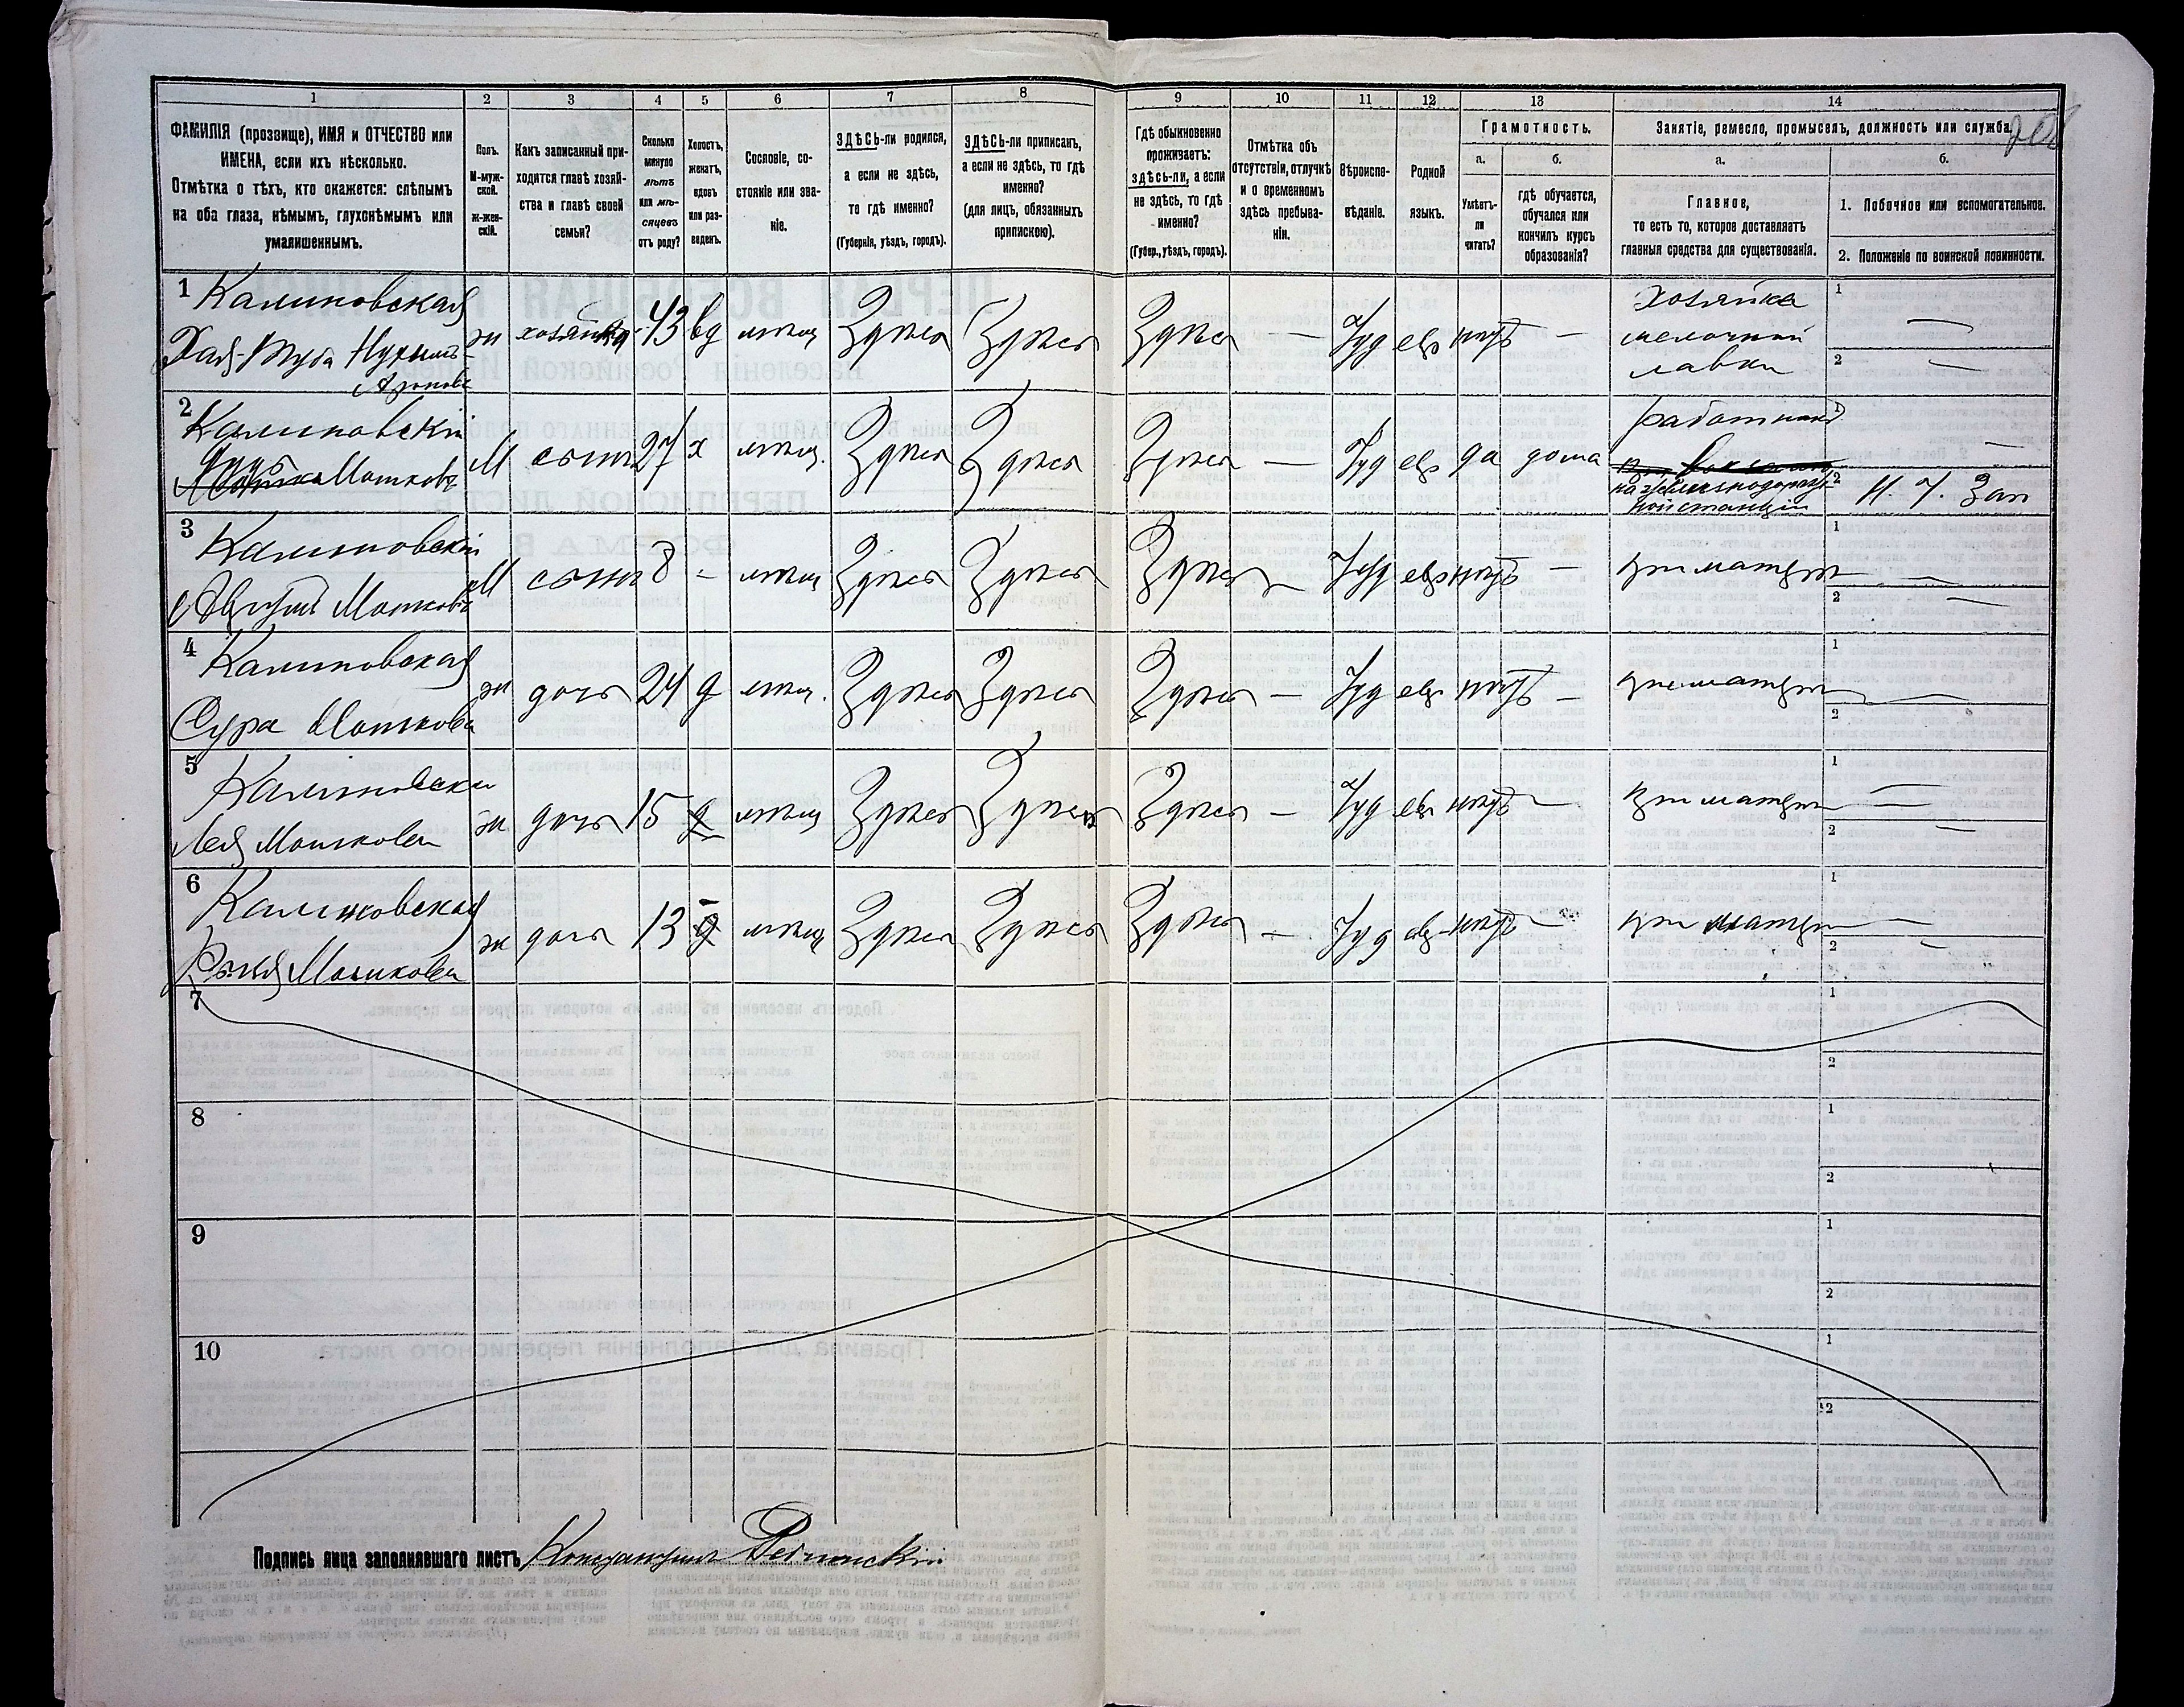 1 2 3 4 5 6 7 8 9 10 11 12 13 14
ФАМИЛІЯ (прозвище), ИМЯ и ОТЧЕСТВО или
ИМЕНА, если ихъ нѣсколько.
Отмѣтка о тѣхъ, кто окажется: слѣпымъ
на оба глаза, нѣмымъ, глухонѣмымъ или
умалишеннымъ.
Полъ.
М-муж-
ской.
Ж-жен-
скій.
Какъ записанный при-
ходится главѣ хозяй-
ства и главѣ своей
семьи?
Сколько
минуло
лѣтъ
или мѣ-
сяцевъ
отъ роду?
Холостъ,
женатъ,
вдовъ
или раз-
веденъ.
Сословіе, со-
стояніе или зва-
ніе.
ЗДѢСЬ-ли родился,
а если не здѣсь,
то гдѣ именно?
(Губернія, уѣздъ, городъ).
ЗДѢСЬ-ли приписанъ,
а если не здѣсь, то гдѣ
именно?
(для лицъ, обязанныхъ
припискою).
Гдѣ обыкновенно
проживаетъ:
здѣсь-ли, а если
не здѣсь, то гдѣ
именно?
(Губер., уѣздъ, городъ).
Отмѣтка объ
отсутствіи, отлучкѣ
и о временномъ
здѣсь пребыва-
ніи.
Вѣроиспо-
вѣданіе.
Родной
языкъ.
Грамотность.
а. б.
Умѣетъ-
ли
читать?
гдѣ обучается,
обучался или
кончилъ курсъ
образованія?
Занятіе, ремесло, промыселъ, должность или служба.
а. б.
Главное,
то есть то, которое доставляетъ
главныя средства для существованія.
1. Побочное или вспомогательное.
2. Положеніе по воинской повинности.
1 Калиновская
Хая- Нухимъ-
Аронова
ж хозяйка 43 вд мѣщ Здѣсь Здѣсь Здѣсь — Іуд евр нѣтъ —
хозяйка
мелочной
лавки
1 —
2 —
2 Калиновскій
Мошковъ
М сынъ 27 х мѣщ. Здѣсь Здѣсь Здѣсь — Іуд евр да дома
работникъ
на желѣзнодорож-
ной станціи
1 —
2 Н. Ч. Зап
3 Калиновскій
Мошковъ
М сынъ 8 - мѣщ Здѣсь Здѣсь Здѣсь — Іуд евр нѣтъ — при матери
1 —
2 —
4 Калиновская
Сура Мошкова
ж дочь 24 д мѣщ. Здѣсь Здѣсь Здѣсь — Іуд евр нѣтъ — при матери
1 —
2
5 Калиновская
Лея Мошкова
ж дочь 15 д мѣщ Здѣсь Здѣсь Здѣсь — Іуд евр нѣтъ — при матери
1 —
2 —
6 Калиновская
Мошкова
ж дочь 13 д мѣщ Здѣсь Здѣсь Здѣсь — Іуд евр нѣтъ — при матери
1 —
2 —
7 1
2
8 1
2
9 1
2
10 1
2
Подпись лица заполнявшаго листъ